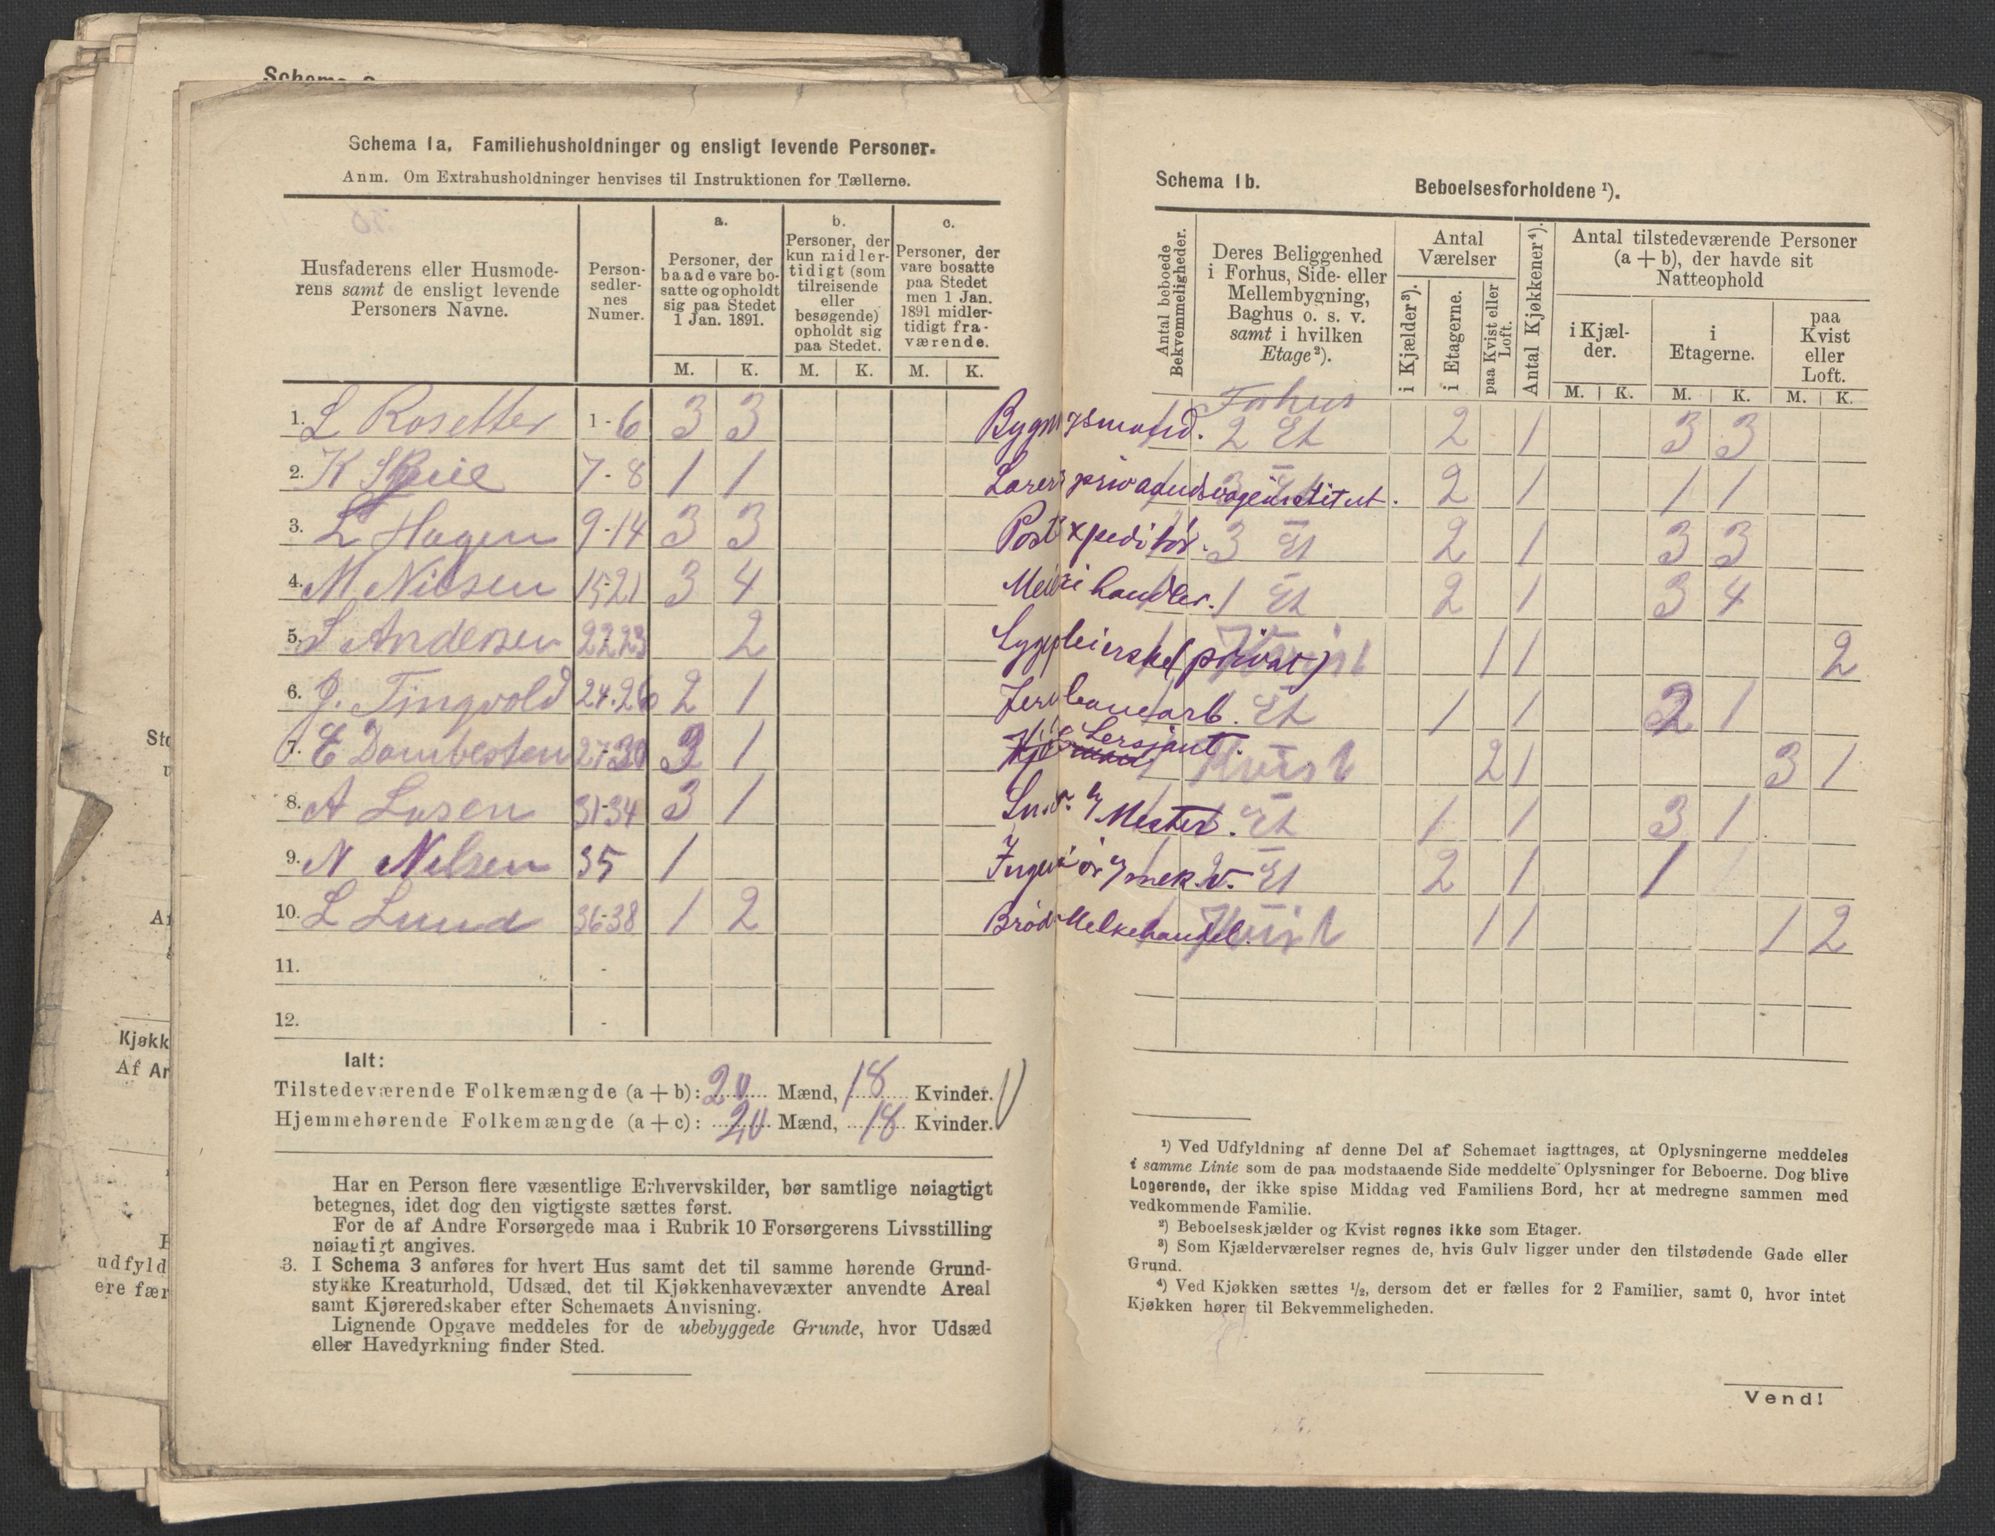 Schema 1a. Familiehusholdninger og ensligt levende Personer.
Anm. Om Extrahusholdninger henvises til Instruktionen for Tællerne.
Husfaderens eller Husmode-
rens samt de ensligt levende
Personers Navne.
Person-
sedler-
nes
Numer.
a.
Personer, der
baade vare bo-
satte og opholdt
sig paa Stedet
1 Jan. 1891.
b.
Personer, der
kun midler-
tidigt (som
tilreisende
eller
besøgende)
opholdt sig
paa Stedet.
c.
Personer, der
vare bosatte
paa Stedet
men 1 Jan.
1891 midler-
tidigt fra-
værende.
M. K. M. K. M. K.
1. L Rosetter 1-6 3 3
2. K 7-8 1 1
3. L Hagen 9-14 3 3
4. M Nilsen 15-21 3 4
5. S Andersen 22-23 2
6. J. Tingvold 24-26 2 1
7. E Dambesten 27-30 3 1
8. A Lasen 31-34 3 1
9. N Nilsen 35 1
10. L Lund 36-38 1 2
11. -
12. -
Ialt:
Tilstedeværende Folkemængde (a + b): 20 Mænd, 18 Kvinder.
Hjemmehørende Folkemængde (a + c): 20 Mænd, 18 Kvinder.
Har en Person flere væsentlige Erhvervskilder, bør samtlige nøiagtigt
betegnes, idet dog den vigtigste sættes først.
For de af Andre Forsørgede maa i Rubrik 10 Forsørgerens Livsstilling
nøiagtigt angives.
3. I Schema 3 anføres for hvert Hus samt det til samme hørende Grund-
stykke Kreaturhold, Udsæd, det til Kjøkkenhavevæxter anvendte Areal
samt Kjøreredskaber efter Schemaets Anvisning.
Lignende Opgave meddeles for de ubebyggede Grunde, hvor Udsæd
eller Havedyrkning finder Sted.
Schema 1b. Beboelsesforholdene ¹).
Antal beboede
Bekvemmeligheder.
Deres Beliggenhed
i Forhus, Side- eller
Mellembygning,
Baghus o. s. v.
samt i hvilken
Etage ²).
Antal
Værelser
i Kjælder ³).
i Etagerne.
paa Kvist eller
Loft.
Antal Kjøkkener ⁴).
Antal tilstedeværende Personer
(a + b), der havde sit
Natteophold
i Kjæl-
der.
i
Etagerne.
paa
Kvist
eller
Loft.
M. K. M. K. M. K.
Forhus
1 2 Et 2 1 3 3
1 3 Et 2 1 1 1
Postexpeditör. 1 3 Et 2 1 3 3
handler. 1 1 Et 2 1 3 4
(privat) 1 Kvist 1 1 2
Jernbanearb. 1 Et 1 1 2 1
Sersjant. 1 Kvist 2 1 3 1
Mester. 1 1 Et 1 1 3 1
mek. v. 1 2 Et 2 1 1
Melkehandel. 1 Kvist 1 1 1 2
¹) Ved Udfyldning af denne Del af Schemaet iagttages, at Oplysningerne meddeles
i samme Linie som de paa modstaaende Side meddelte Oplysninger for Beboerne. Dog blive
Logerende, der ikke spise Middag ved Familiens Bord, her at medregne sammen med
vedkommende Familie.
²) Beboelseskjælder og Kvist regnes ikke som Etager.
³) Som Kjælderværelser regnes de, hvis Gulv ligger under den tilstødende Gade eller
Grund.
⁴) Ved Kjøkken sættes ½, dersom det er fælles for 2 Familier, samt 0, hvor intet
Kjøkken hører til Bekvemmeligheden.
Vend!